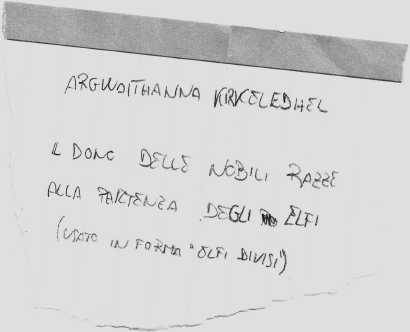 ARGWAITHANNA KIRKELEDHEL
IL DONO DELLE NOBILI RAZZE
ALLA PARTENZA DEGLI ELFI
(USATO IN FORMA "ELFI DIVISI")